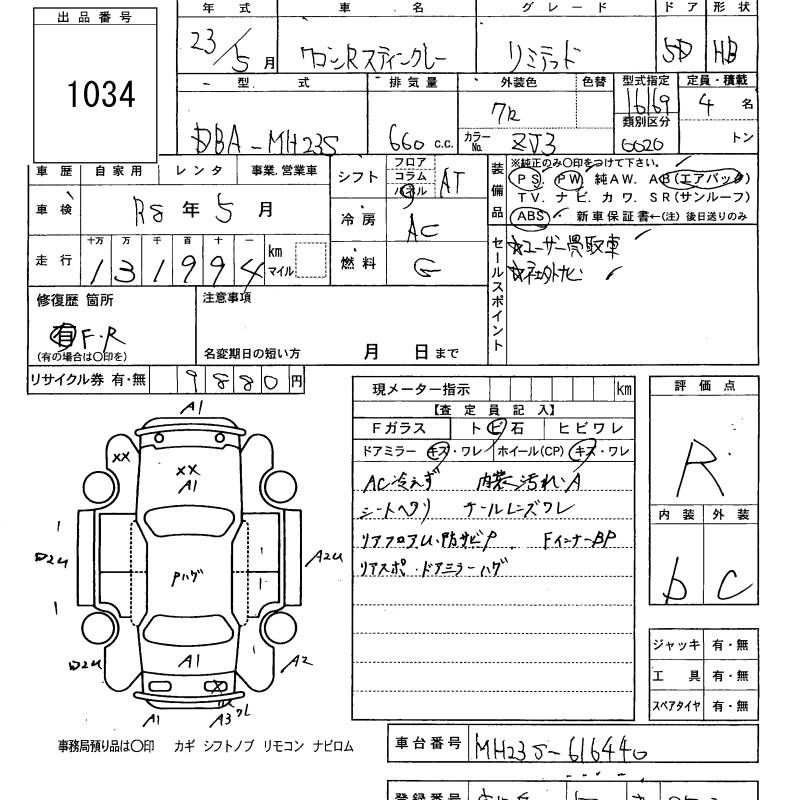 出品番号
1034
年式 車名 グレード ドア 形状
23/5月 ワゴンRスティングレー リミテッド 5D HB
型式 排気量 外装色 色替 型式指定 定員・積載
DBA-MH23S 660 c.c. カラーNo. ZJ3 16169 類別区分 4名 トン
車歴 自家用 レンタ 事業.営業車
車検 R8年5月
走行 十万 万 千 百 十 一 km マイル
131994
シフト フロア コラム パネル AT
冷房 AC
燃料 G
装備品 ※純正のみ〇印をつけて下さい。
PS. PW 純AW. AB(エアバック)
TV. ナビ. カワ. SR(サンルーフ)
ABS 新車保証書←(注)後日送りのみ
セールスポイント ☆ユーザー買取車
☆社外ナビ
修復歴 箇所 注意事項
有 F.R
(有の場合は〇印を) 名変期日の短い方 月 日まで
リサイクル券 有・無 9880円
現メーター指示 km
【査定員記入】
Fガラス トビ石 ヒビワレ
ドアミラー キズ・ワレ ホイール(CP) キズ・ワレ
AC冷えず 内装汚れ.A
シートヘタリ テールレンズワレ
リアフロアU.防サビP FインナーBP
リアスポ.ドアミラーハゲ
評価点
R
内装 外装
b C
A1
XX
XX
A1
1
D2U
1
Pハゲ
1
1
A2U
D2U
A1
1
A2
X
A1
A3ワレ
ジャッキ 有・無
工具 有・無
スペアタイヤ 有・無
事務局預り品は〇印 カギ シフトノブ リモコン ナビロム
車台番号 MH23S-616440
登録番号